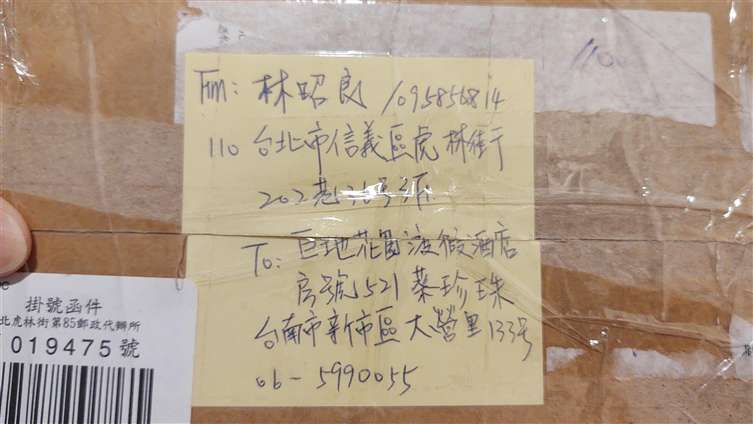 Fm: 林昭良 /095856814
110 台北市信義區虎林街
202巷36號3F
To: 巨地花園渡假酒店
房號1521 蔡珍珠
台南市新市區大營里133號
06-5990055
掛號函件
北虎林街第85郵政代辦所
019475號